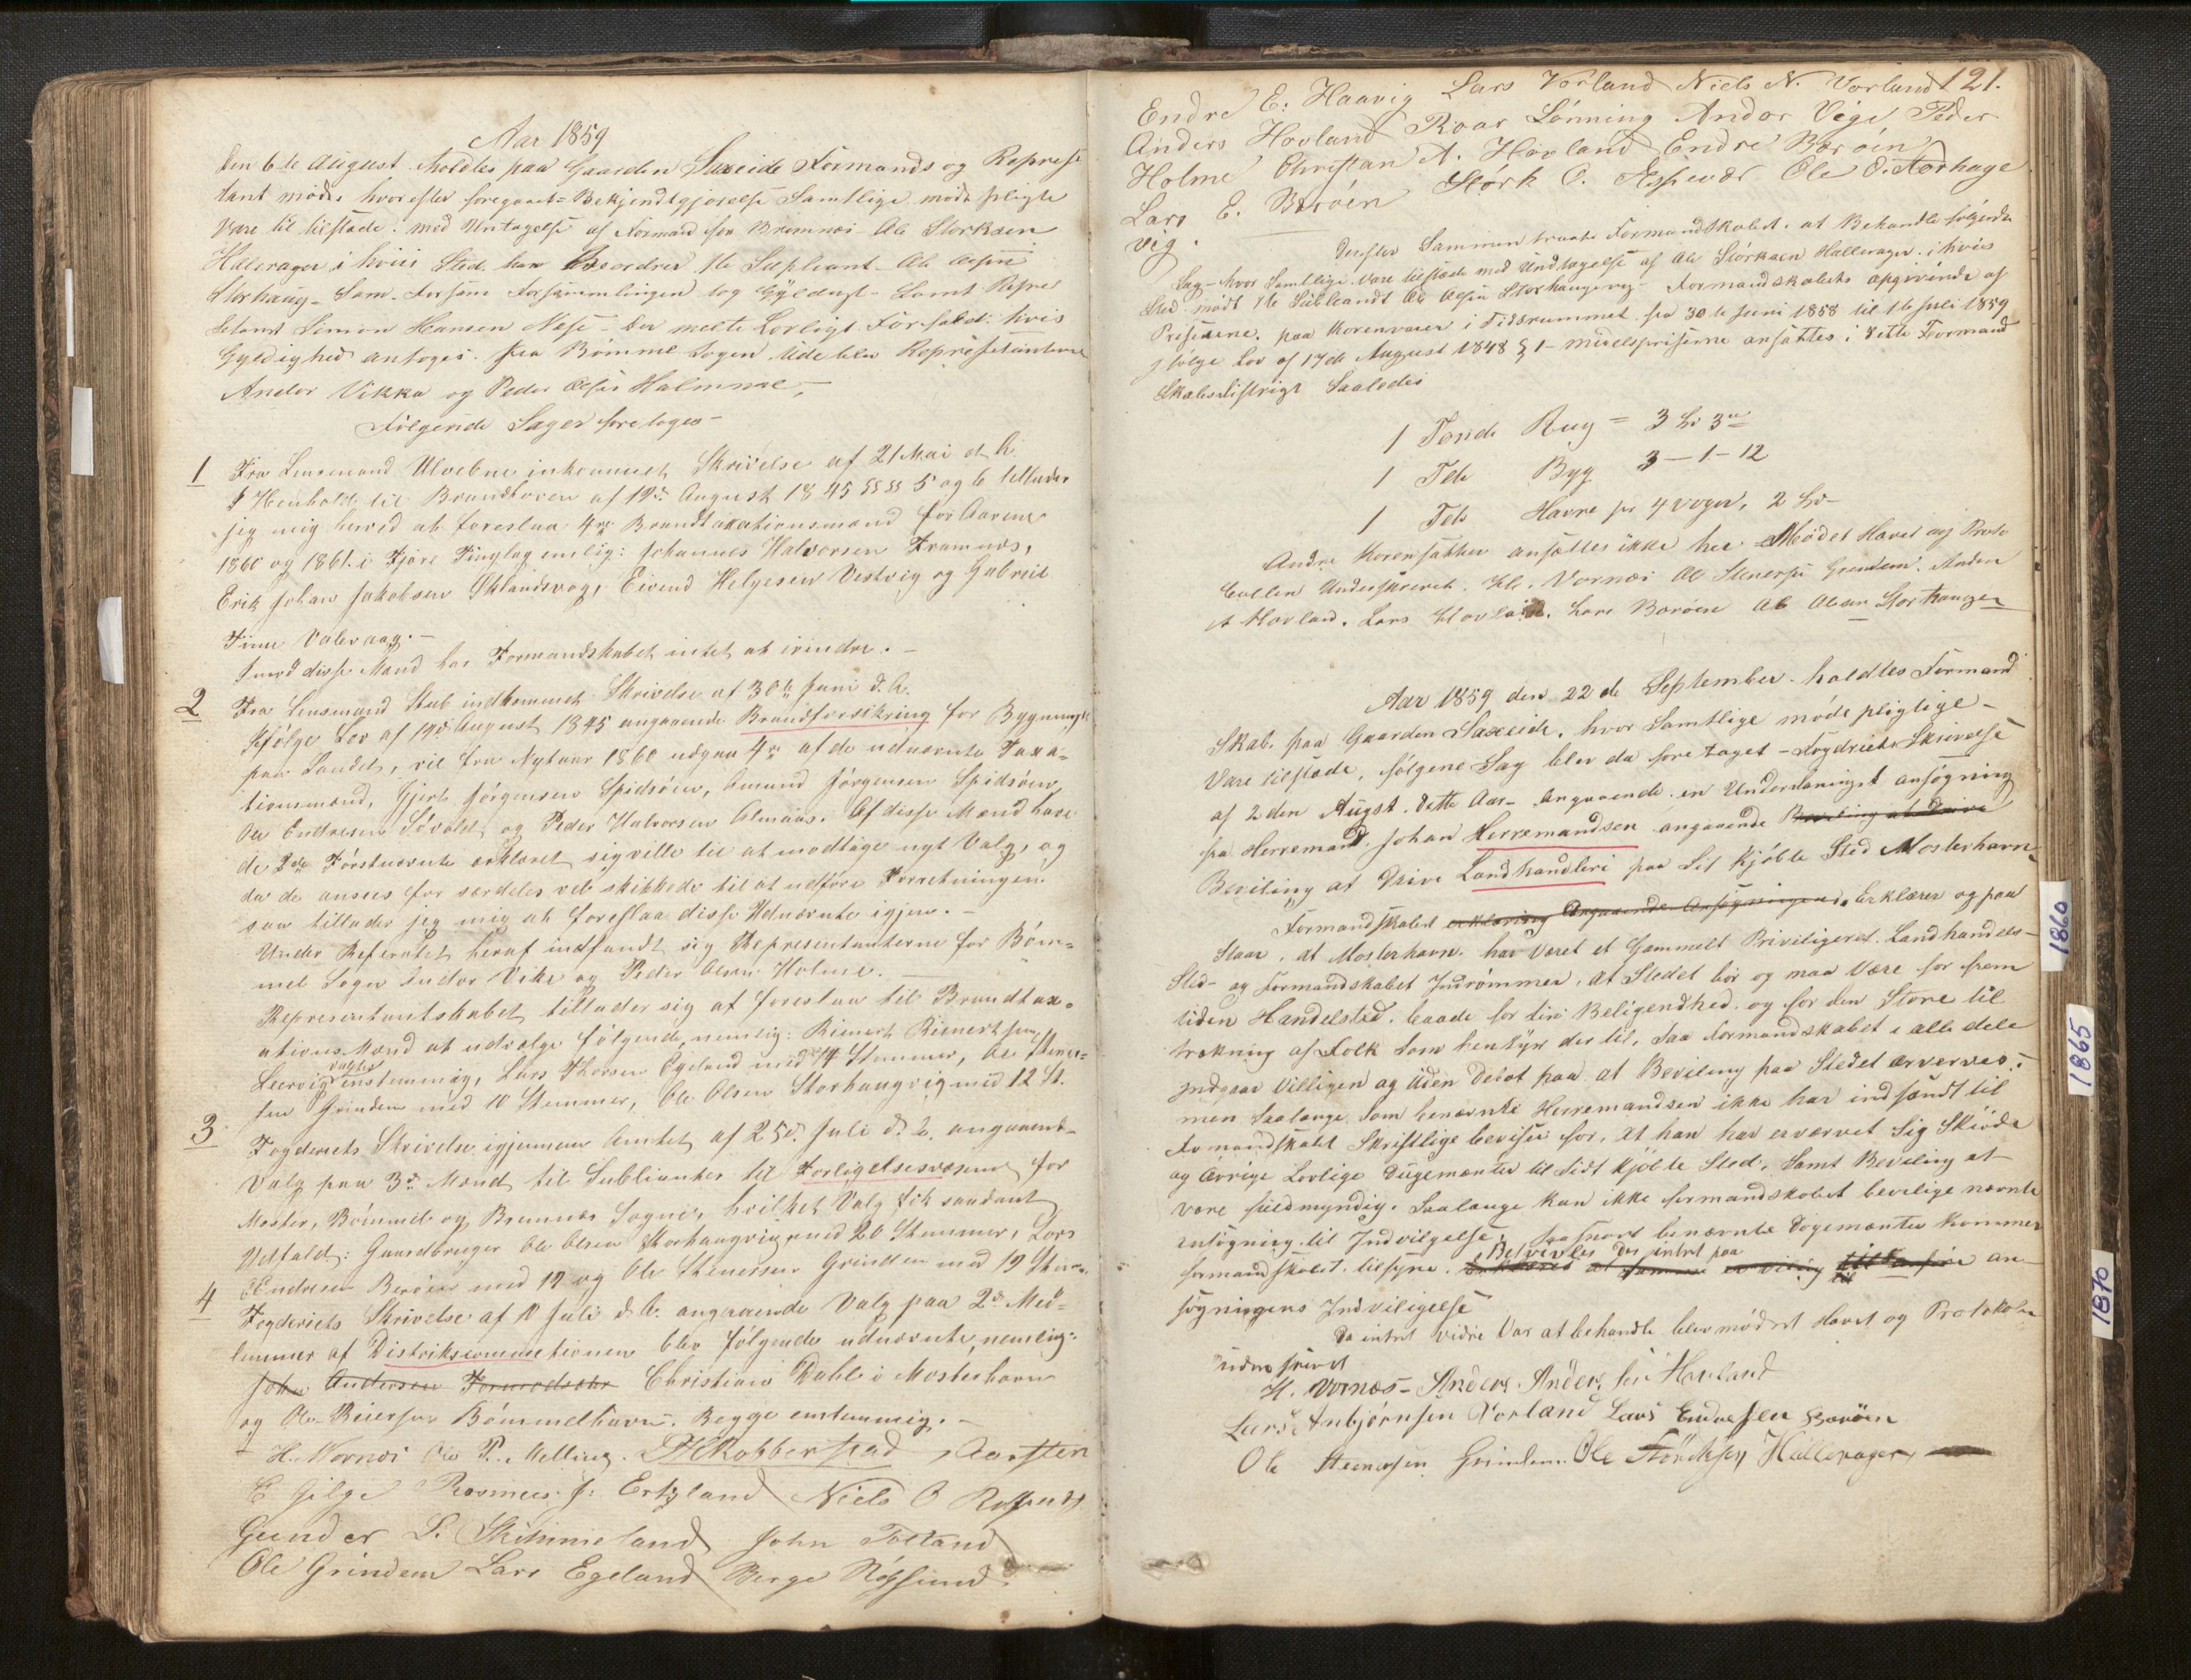 Aar 1859
Den 6te August holdtes paa Gaarden Saxeide Formands og Represe
tant møde, hvorefter foregaaet Bekjendtgjørelse Samtlige møde pligte
Vare til tilstæde. med Untagelse af Formand for Bremnæs Ole Storksen
Hallerager i hviis Sted han Beordrer 1te Supleant Ole Olsen
Storhaug - Som Forsamlingen tog Gyldigt - Samt Repre
setant Simon Hansen Næse - der melte Lovligt Forfald. hvis
Gyldighed antoges. fra Bømmel Sogen Udeblev Represetanterne
Andor Vikka og Peder Olsen Holmme,
Følgende Sager foretoges -
1 Fra Lensmand Ulvebne inkommet Skrivelse af 21 Mai d. A.
I Henhold til Brandloven af 19de August 1845 §§ 5 og 6 tillader
jeg mig herved at foreslaa 4re Brandtaxationsmænd for Aarene
1860 og 1861 i Fjære Tinglag nemlig: Johannes Halvorsen Framnæs,
Erik Johan Jakobsen Øklandsvog, Eivend Helgesen Vestvig og Gabriel
Finn Valevaag. -
Imod disse Mænd har Formandskabet intet at erindre. -
2 Fra Lensmand Stub indkommet Skrivelse af 30te Juni d. A.
Ifølge Lov af 19de August 1845 angaaende Brandforsikring for Bygninger
paa Landet, vil fra Nytaar 1860 udgaa 4re af de udnævnte Taxa-
tionsmænd, Gjert Jørgensen Spidsøen, Amund Jørgensen Spidsøen,
Ole Endresen Søvold og Peder Halvorsen Almaas. Af disse Mænd have
de 2de Førstnævnte erklæret sig ville til at modtage nyt Valg, og
da de ansees for særdeles vel skikkede til at udføre Forretningen
saa tillader jeg mig at foreslaa disse Udnævnte igjen. -
Under Referatet heraf indfandt sig Representanterne for Bøm-
mel Sogn Andor Vike og Peder Olsen Holme. -
Representantskabet tillader sig at foreslaa til Brandtax-
ations Mænd at udvælge følgende, nemlig: Rienert Rienertsen
Leervig valgtes enstemmig, Lars Thorsen Egeland med 14 Stemmer, Ole Stener-
sen Grindem med 10 Stemmer, Ole Olsen Storhaugvig med 12 St.
3 Fogderiets Skrivelse igjennem Amtet af 25de Juli d. A. angaaend
Valg paa 3de Mænd til Sublianter til Forligelsesvæsenet for
Moster, Bømmel og Bremnæs Sogne, hvilket Valg fik saadant
Udfald: Gaardbruger Ole Olsen Storhaugvig med 20 Stemmer, Lars
Endresen Berøen med 19 og Ole Stenersen Grindem med 19 Stem.
4 Fogderiets Skrivelse af 10 Juli d. A. angaaende Valg paa 2de Med-
lemmer af Distrikscommitionen blev følgende udnævnte, nemlig:
John Andersen Christian Dahl i Mosterhavn
og Ole Reiersen Bømmelhavn. Begge enstemmig. -
H. Vornæs Ole P. Melling. Robberstad Aarsten
E Gilge Rasmus J. Ertzland Niels O
Gunder L. Skimmeland John Totland
Ole Grindem Lars Egeland Berge Røssund
121.
Endre E. Haavig Lars Vorland Niels N. Vorland
Anders Hovland Roar Lønning Andor Vige Peder
Holme Christan A. Hovland Endre Børøen
Lars E. Børøen Størk O. Espevær Ole O. Storhage
vig.
Derefter Sammentraate Formandskabet. at Behandle følgende
Sag - hvor Samtlige Vare tilstæde med Undtagelse af Ole Størksen Hallerager. i hvis
Sted mødt 1te Subleandt Ole Olsen Storhaugevig - Formandskabets opgivende af
Priserne, paa Korenvarer i Tidsrummet fra 30te Juni 1858 til 1te Juli 1859
ifølge Lov af 17de August 1848 § 1 - midelspriserne ansattes i dette Formand
Skabsdistrigt Saaledes
1 Tønde Rug = 3 3
1 Tde Byg 3 - 1 - 12
1 Tde Havre pr 4 voger, 2
Andre Korensatter ansættes ikke her - Mødet Hævet og Proto
collen Underskrevet. H. Vornæs Ole Stenersen Grindem. Anders
A Hovland. Lars Hovland. Lars Børøen Ole Olsen Storhaugen
Aar 1859 den 22de September holdtes Formand
Skab. paa Gaarden Saxeide. hvor Samtlige møde pligtige -
Vare tilstæde, følgene Sag blev da fore taget - Fogdriets Skrivelse
af 2den Augst. dette Aar - Angaaende en Underdanigst ansøgning
fra Herremand Johan Herremandsen angaaende Beviling at Drive
Beviling at Drive Landhandleri paa Sit Kjøbte Sted Mosterhavn
Formandskabet erklæring Angaaende Ansøgningen Erklærer og paa
Staar, at Mosterhavn har Været et Gammelt Priviligeret Landhandels-
Sted - og Formandskabet Indrømmer, at Stedet bør og maa Være for frem
tiden Handelsted. baade for sin Beligendhed og for den Store til
trækning af Folk som hentyr der til, Saa Formandskabet i alle dele
Indgaar Villigen og Uden Debat paa at Beviling paa Stedet erverves:
men Saalænge som benævnte Herremandsen ikke har indsendt til
Formandskabet Skriftlige beviser for, at han har erværvet Sig Skiøde
og Øvrige Lovlige Dugemænter til Sidt Kjøbte Sted, Samt Beviling at
være fuldmyndig. Saalænge kan ikke formandskabet bevilige nævnte
ansøgning til Indvilgelse, Saasnart benævnte Dogemænter Kommer
formandskabet tilsyne. Betvivles der intet paa til an
søgningens Indviligelse
Da intet vidre Var at behandle blev mødet Hævet og Protokolen
underskrevet
H. Vornæs - Anders Andersen Hovland
Lars Anbjørnsen Vorland Lars Endresen Børøen
Ole Steenersen Grindem. Ole Størchsen Hallerager
1860
1865
1870